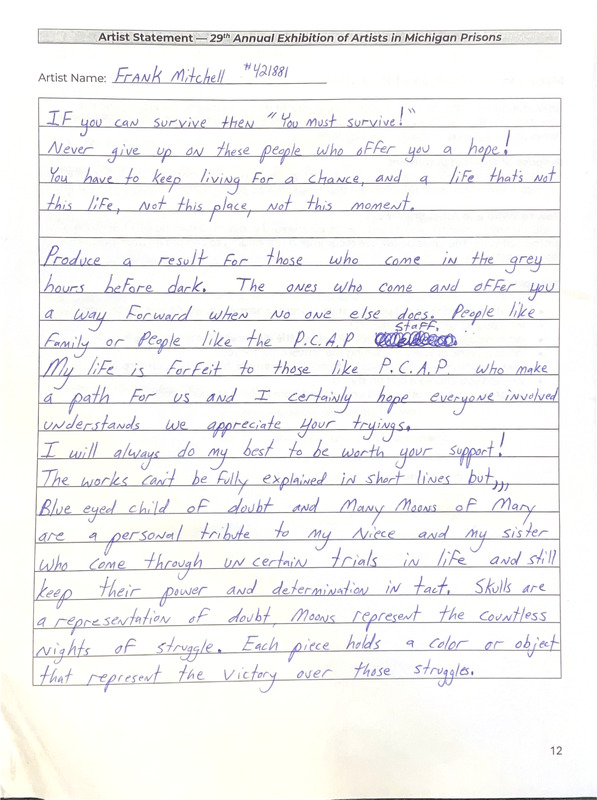 Artist Statement — 29th Annual Exhibition of Artists in Michigan Prisons
Artist Name: Frank Mitchell #421881
If you can survive then "You must survive!"
Never give up on these people who offer you a hope!
You have to keep living for a chance, and a life that's not
this life, Not this place, Not this moment.
Produce a result for those who come in the grey
hours before dark. The ones who come and offer you
a way forward when no one else does. People like
Family or People like the P.C.A.P staff.
My life is forfeit to those like P.C.A.P. who make
a path for us and I certainly hope everyone involved
understands we appreciate your tryings.
I will always do my best to be worth your support!
The works can't be fully explained in short lines but,,,
Blue eyed child of doubt and Many Moons of Mary
are a personal tribute to my Niece and my sister
who come through un certain trials in life and still
keep their power and determination in tact. Skulls are
a representation of doubt, Moons represent the countless
nights of struggle. Each piece holds a color or object
that represent the victory over those struggles.
12